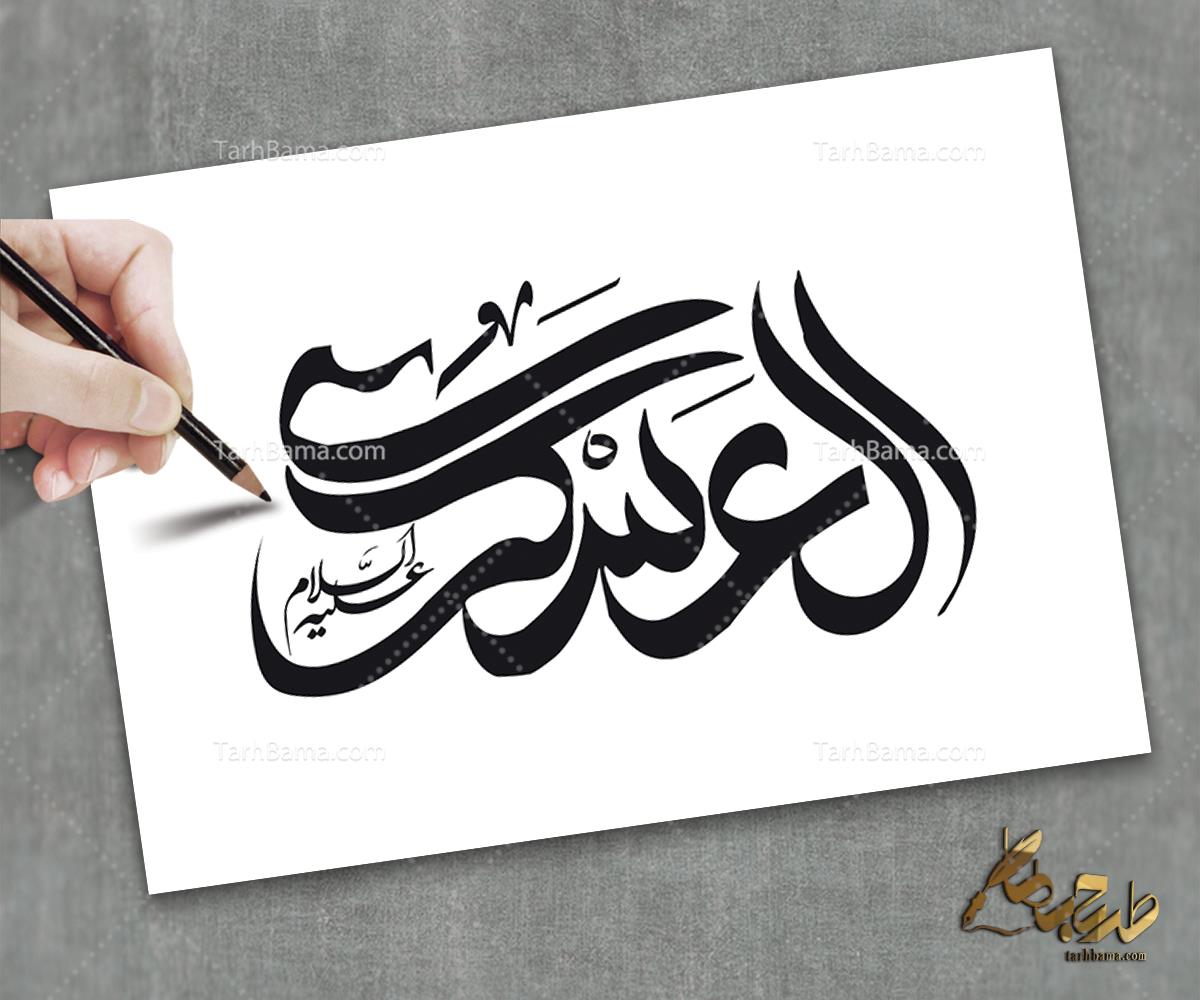 TarhBama.com TarhBama.com
العسكري
TarhBama.com TarhBama.com
السلام
عليه
TarhBama.com TarhBama.com
طرح باما
tarhbama.com